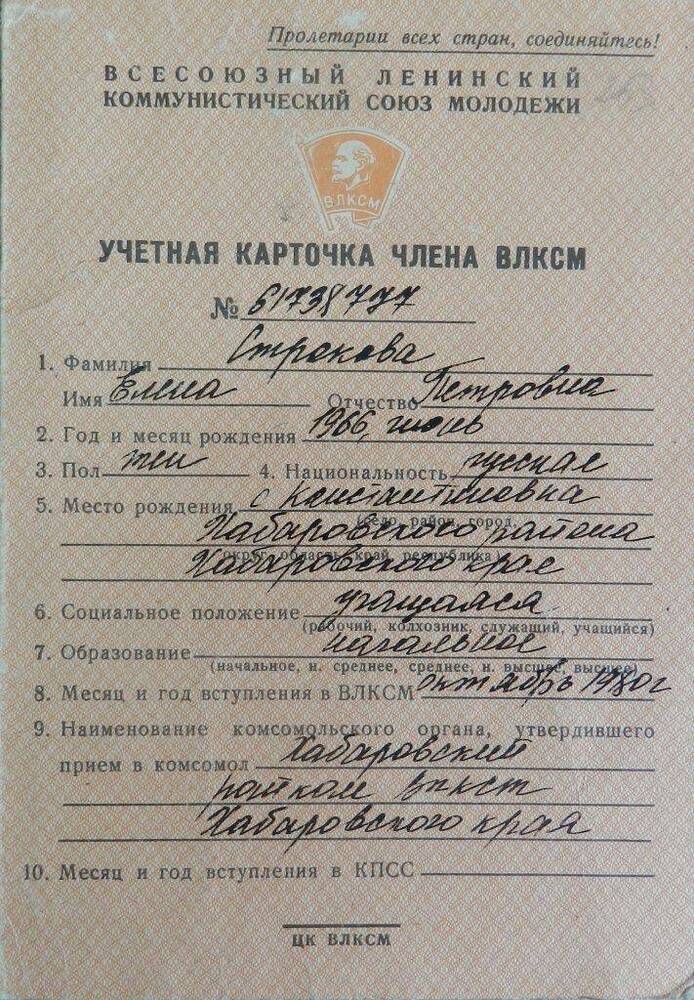 Пролетарии всех стран, соединяйтесь!
ВСЕСОЮЗНЫЙ ЛЕНИНСКИЙ
КОММУНИСТИЧЕСКИЙ СОЮЗ МОЛОДЕЖИ
ВЛКСМ
УЧЕТНАЯ КАРТОЧКА ЧЛЕНА ВЛКСМ
№ 61738777
1. Фамилия Строкова
Имя Елена Отчество Петровна
2. Год и месяц рождения 1966, июнь
3. Пол жен 4. Национальность русская
5. Место рождения с Константиновка
(село, район, город,
Хабаровского района
округ, область, край, республика)
Хабаровского края
6. Социальное положение учащаяся
(рабочий, колхозник, служащий, учащийся)
7. Образование начальное
(начальное, н. среднее, среднее, н. высшее, высшее)
8. Месяц и год вступления в ВЛКСМ октябрь 1980 г
9. Наименование комсомольского органа, утвердившего
прием в комсомол Хабаровский
райком ВЛКСМ
Хабаровского края
10. Месяц и год вступления в КПСС
ЦК ВЛКСМ